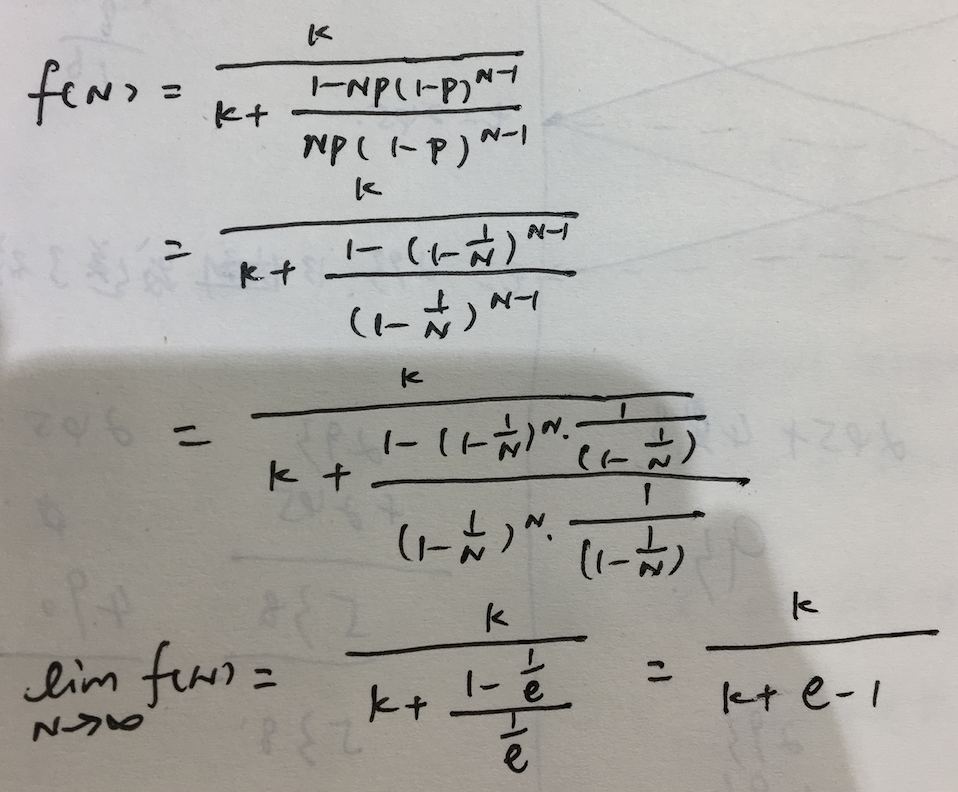 f(N) = \frac{k}{k + \frac{1-Np(1-p)^{N-1}}{Np(1-p)^{N-1}}}
= \frac{k}{k + \frac{1-(1-\frac{1}{N})^{N-1}}{(1-\frac{1}{N})^{N-1}}}
= \frac{k}{k + \frac{1-(1-\frac{1}{N})^{N} \cdot \frac{1}{(1-\frac{1}{N})}}{(1-\frac{1}{N})^{N} \cdot \frac{1}{(1-\frac{1}{N})}}}
\lim_{N \to \infty} f(N) = \frac{k}{k + \frac{1-\frac{1}{e}}{\frac{1}{e}}} = \frac{k}{k+e-1}